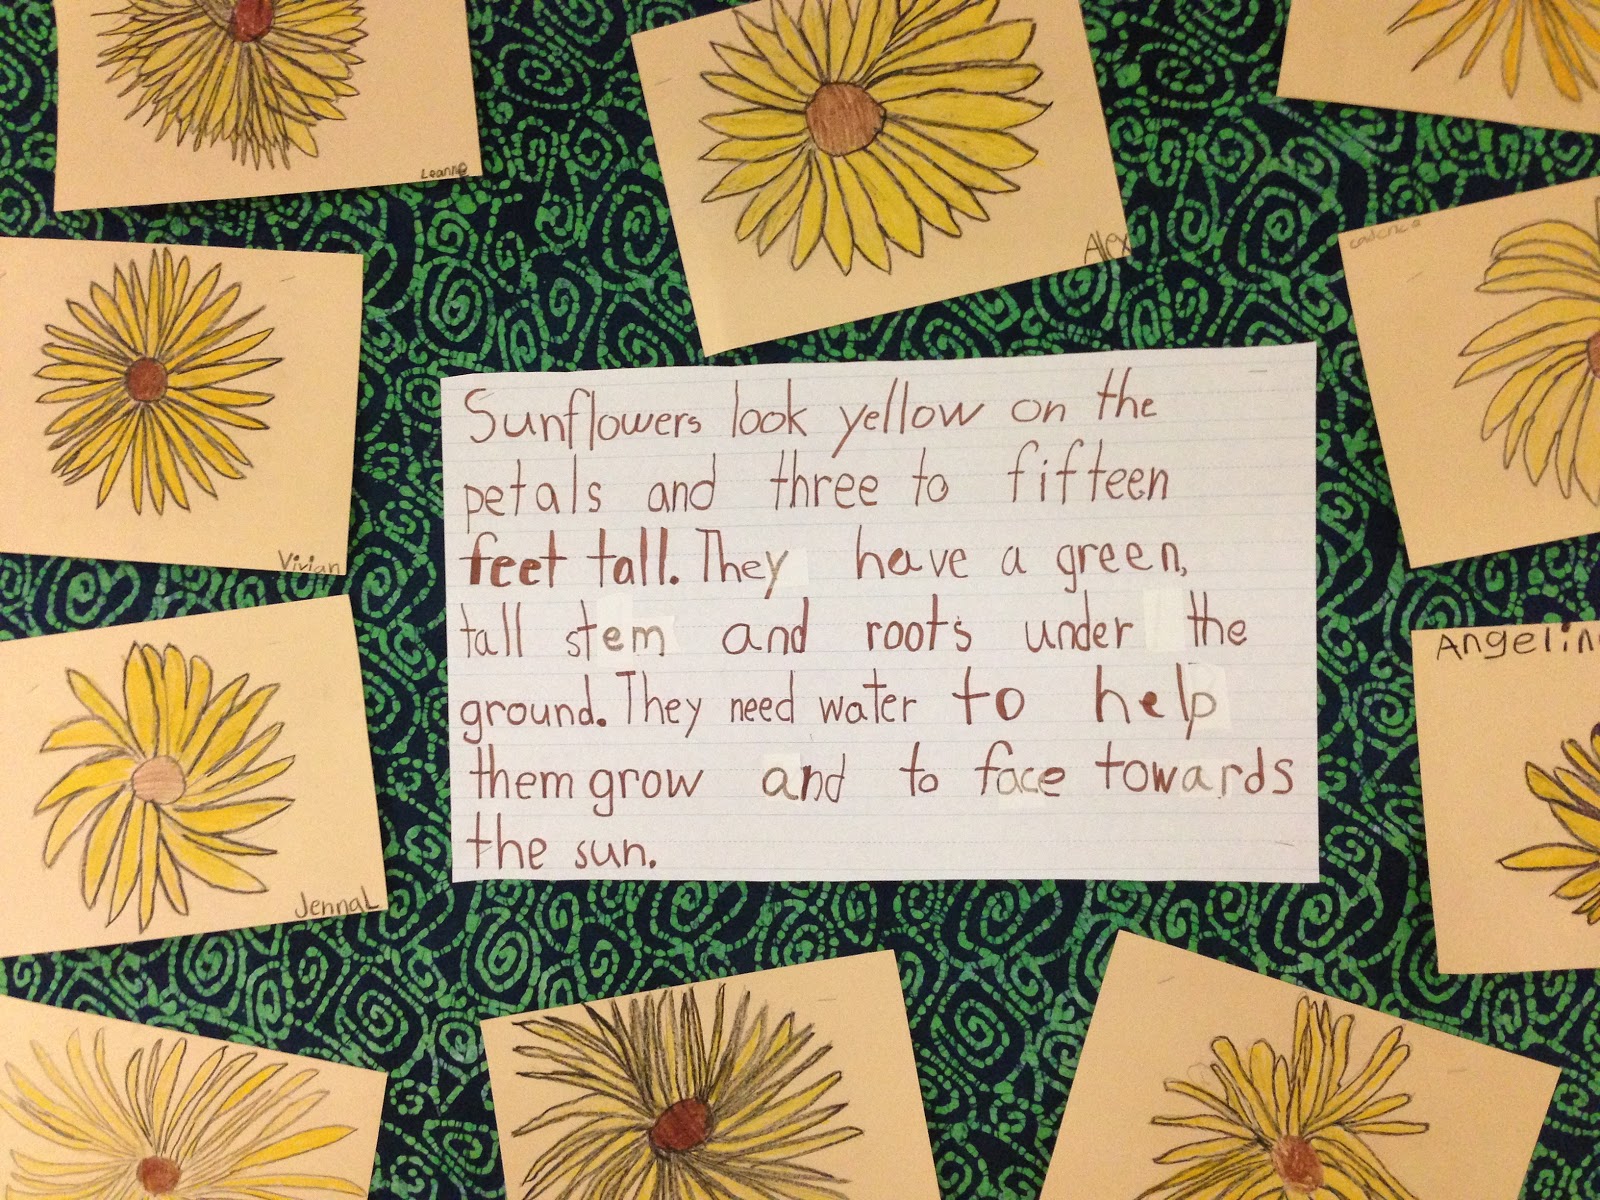 Leanne
Alex
cadence
Vivian
Sunflowers look yellow on the
petals and three to fifteen
feet tall. They have a green,
tall stem and roots under the
ground. They need water to help
them grow and to face towards
the sun.
Angelin
JennaL